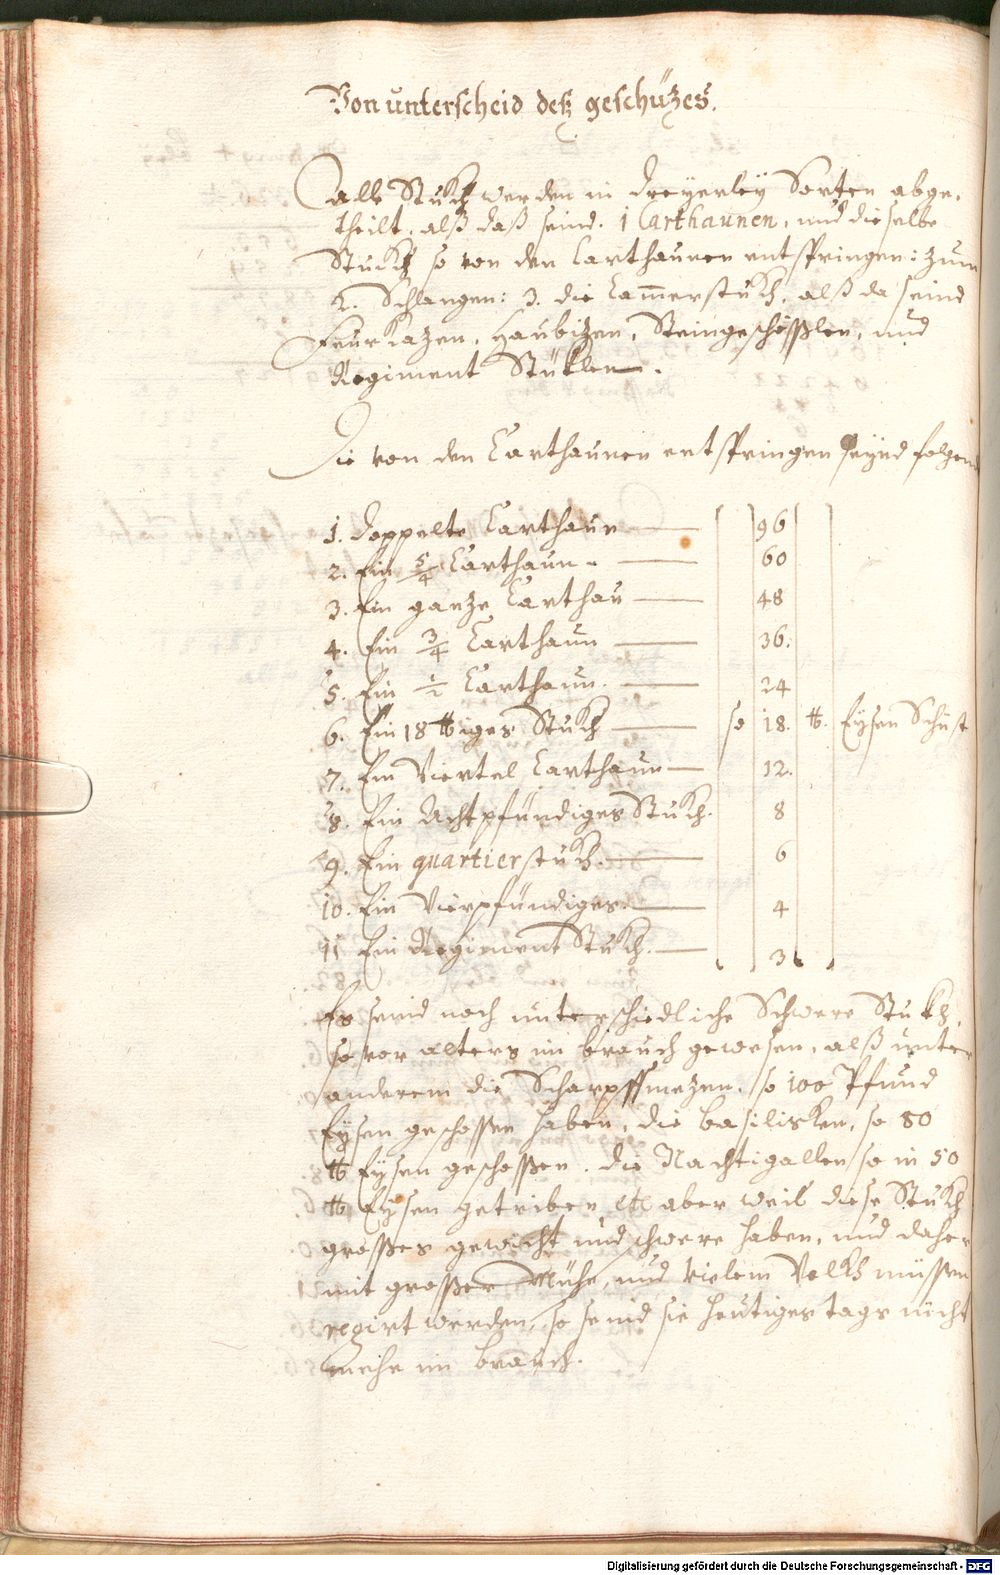 Von unterscheid deß geschüzes.
Alle Stukh werden in dreyerley Sorten abge-
theilt, alß daß seind. 1 Carthaunen, und dieselbe
Stuckh so von den Carthaunen entspringen: zum
2. Schlangen: 3. die Cammerstukh, alß da seind
Feurkazen, Haubizen, Steingeschößlen, und
Regiment Stüklen.
Die von den Carthaunen entspringen seynd folgend
1. doppelte Carthaun — 96
2. Ein 5/4 Carthaun — 60
3. Ein ganze Carthau — 48
4. Ein 3/4 Carthaun — 36.
5. Ein 1/2 Carthaun. — 24
6. Ein 18 ℔iges Stukh — so 18. ℔. Eysen Schüst
7. Ein Viertel Carthaun — 12.
8. Ein Achtpfündiges Stukh. 8
9. Ein quartierstukh. — 6
10. Ein Vierpfündiges. — 4
11 Ein Regiment Stukh. — 3
Es seind noch unterschiedliche Schwere Stukh,
so vor alters im brauch gewesen, alß unter
anderem die Scharpffmezen, so 100 Pfund
Eysen geschossen haben, die Basilisken, so 80
℔ Eysen geschossen. die Nachtigallen so in 50
℔ Eysen getriben etc aber weil diese Stukh
grosses gewicht und schwere haben, und daher
mit grosser Mühe, und vielem Volkh müssen
regirt werden, so seind sie heutiges tags nicht
mehr im brauch.
Digitalisierung gefördert durch die Deutsche Forschungsgemeinschaft - DFG